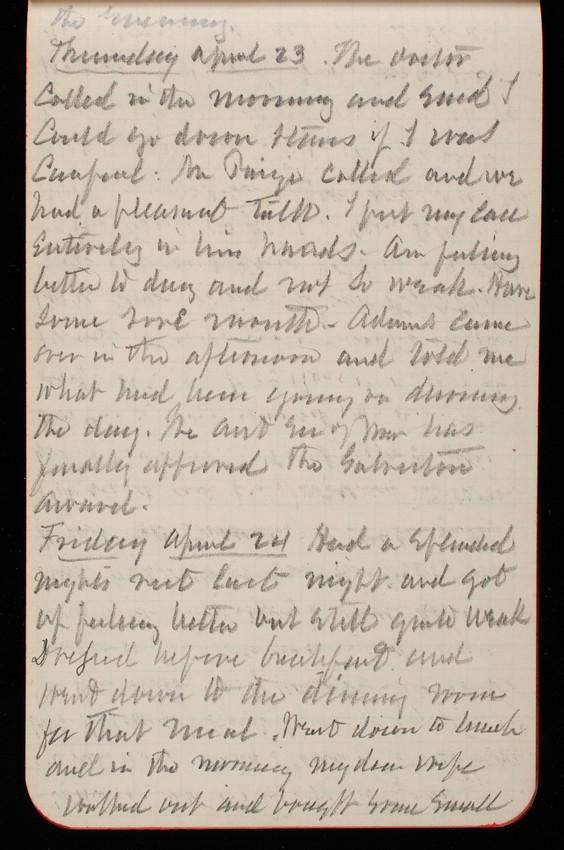 the Evening.
Thursday April 23. The doctor
called in the morning and said I
could go down stairs if I was
careful. Mr Paige called and we
had a pleasant talk. I put my case
entirely in his hands. Am feeling
better to day and not so weak. Have
some sore mouth. Adams came
over in the afternoon and told me
what had been going on during
the day. The Act Sec of War has
finally approved the Galveston
award.
Friday April 24 Had a splendid
nights rest last night and got
up feeling better but still quite weak
Dressed before breakfast and
went down to the dining room
for that meal. Went down to lunch
and in the morning my dear wife
walked out and bought some small